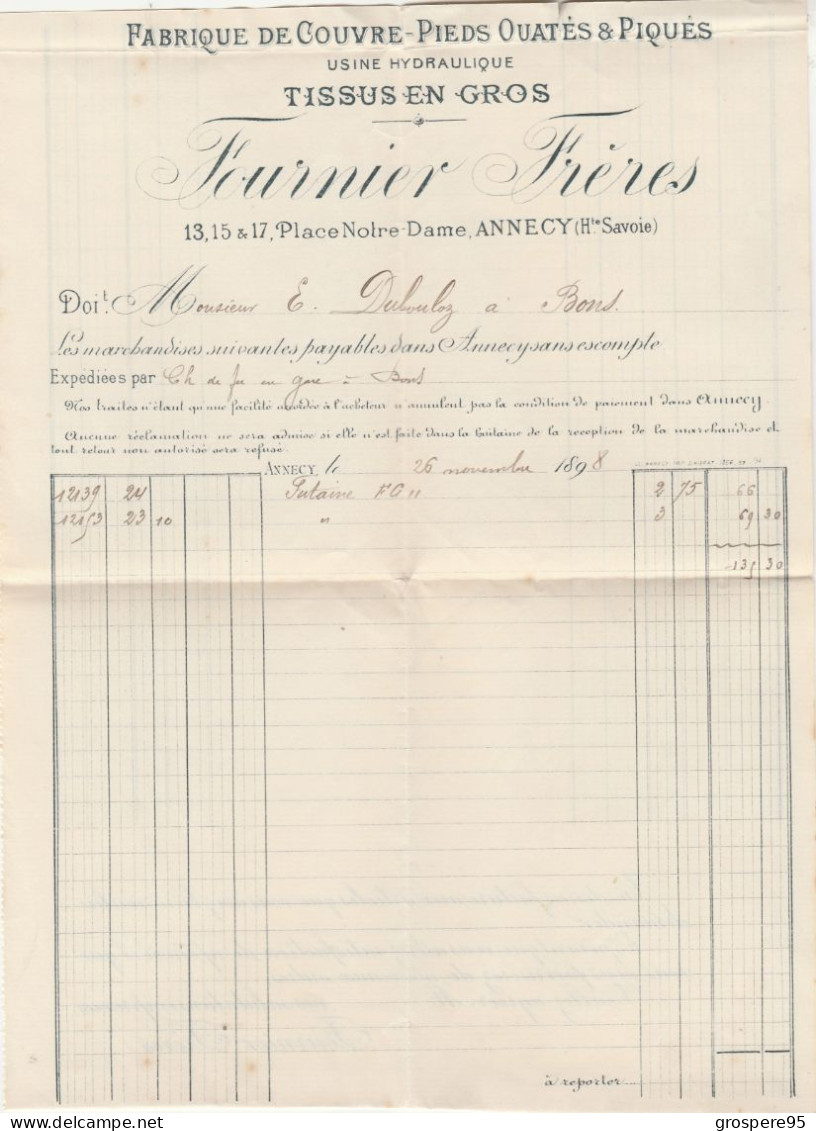 FABRIQUE DE COUVRE-PIEDS OUATÉS & PIQUÉS
USINE HYDRAULIQUE
TISSUS EN GROS
Fournier Frères
13, 15 & 17, Place Notre-Dame, ANNECY (Hte Savoie)
Doit. Monsieur E. Dubouloz à Bons.
Les marchandises suivantes payables dans Annecy sans escompte
Expédiées par Ch de fer en gare à Bons
Nos traites n'étant qu'une facilité accordée à l'acheteur n'annulent pas la condition de paiement dans Annecy.
Aucune réclamation ne sera admise si elle n'est faite dans la huitaine de la réception de la marchandise et
tout retour non autorisé sera refusé.
ANNECY, le 26 novembre 1898
12139 24 Futaine FG " 2 75 66
12153 23 10 " 3 69 30
135 30
à reporter...
grospere95